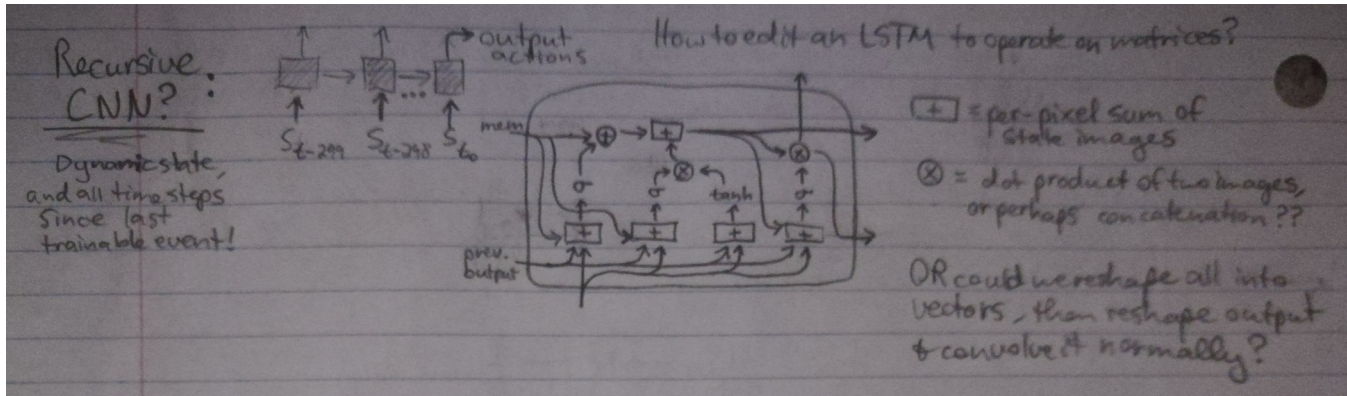 Recursive:
CNN?
Dynamic state,
and all time steps
since last
trainable event!
output
actions
S_{t-299} S_{t-298} S_{t_0}
...
How to edit an LSTM to operate on matrices?
mem
⊕ + ⊗
σ σ ⊗ tanh σ
+ + + +
prev.
output
+ = per-pixel sum of
state images
⊗ = dot product of two images,
or perhaps concatenation??
OR could we reshape all into
vectors, then reshape output
& convolve it normally?